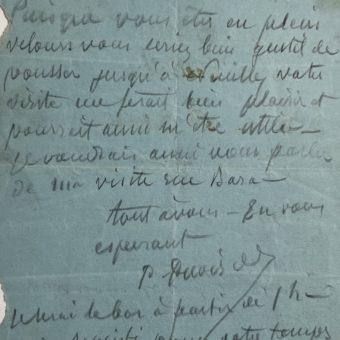 Puisque vous êtes en plein
velours vous seriez bien gentil de
pousser jusqu'à votre
visite me ferait bien plaisir et
pourrait aussi m'être utile —
je voudrais aussi vous parler
de ma visite rue Bara —
tout à vous — En vous
espérant
P.
là bas à partir de 1h —
votre temps